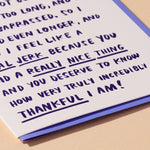 TOO LONG, AND
EMBARRASSED, SO I
EVEN LONGER, AND
I FEEL LIKE A
REAL JERK BECAUSE YOU
DID A REALLY NICE THING
AND YOU DESERVE TO KNOW
HOW VERY TRULY INCREDIBLY
THANKFUL I AM!